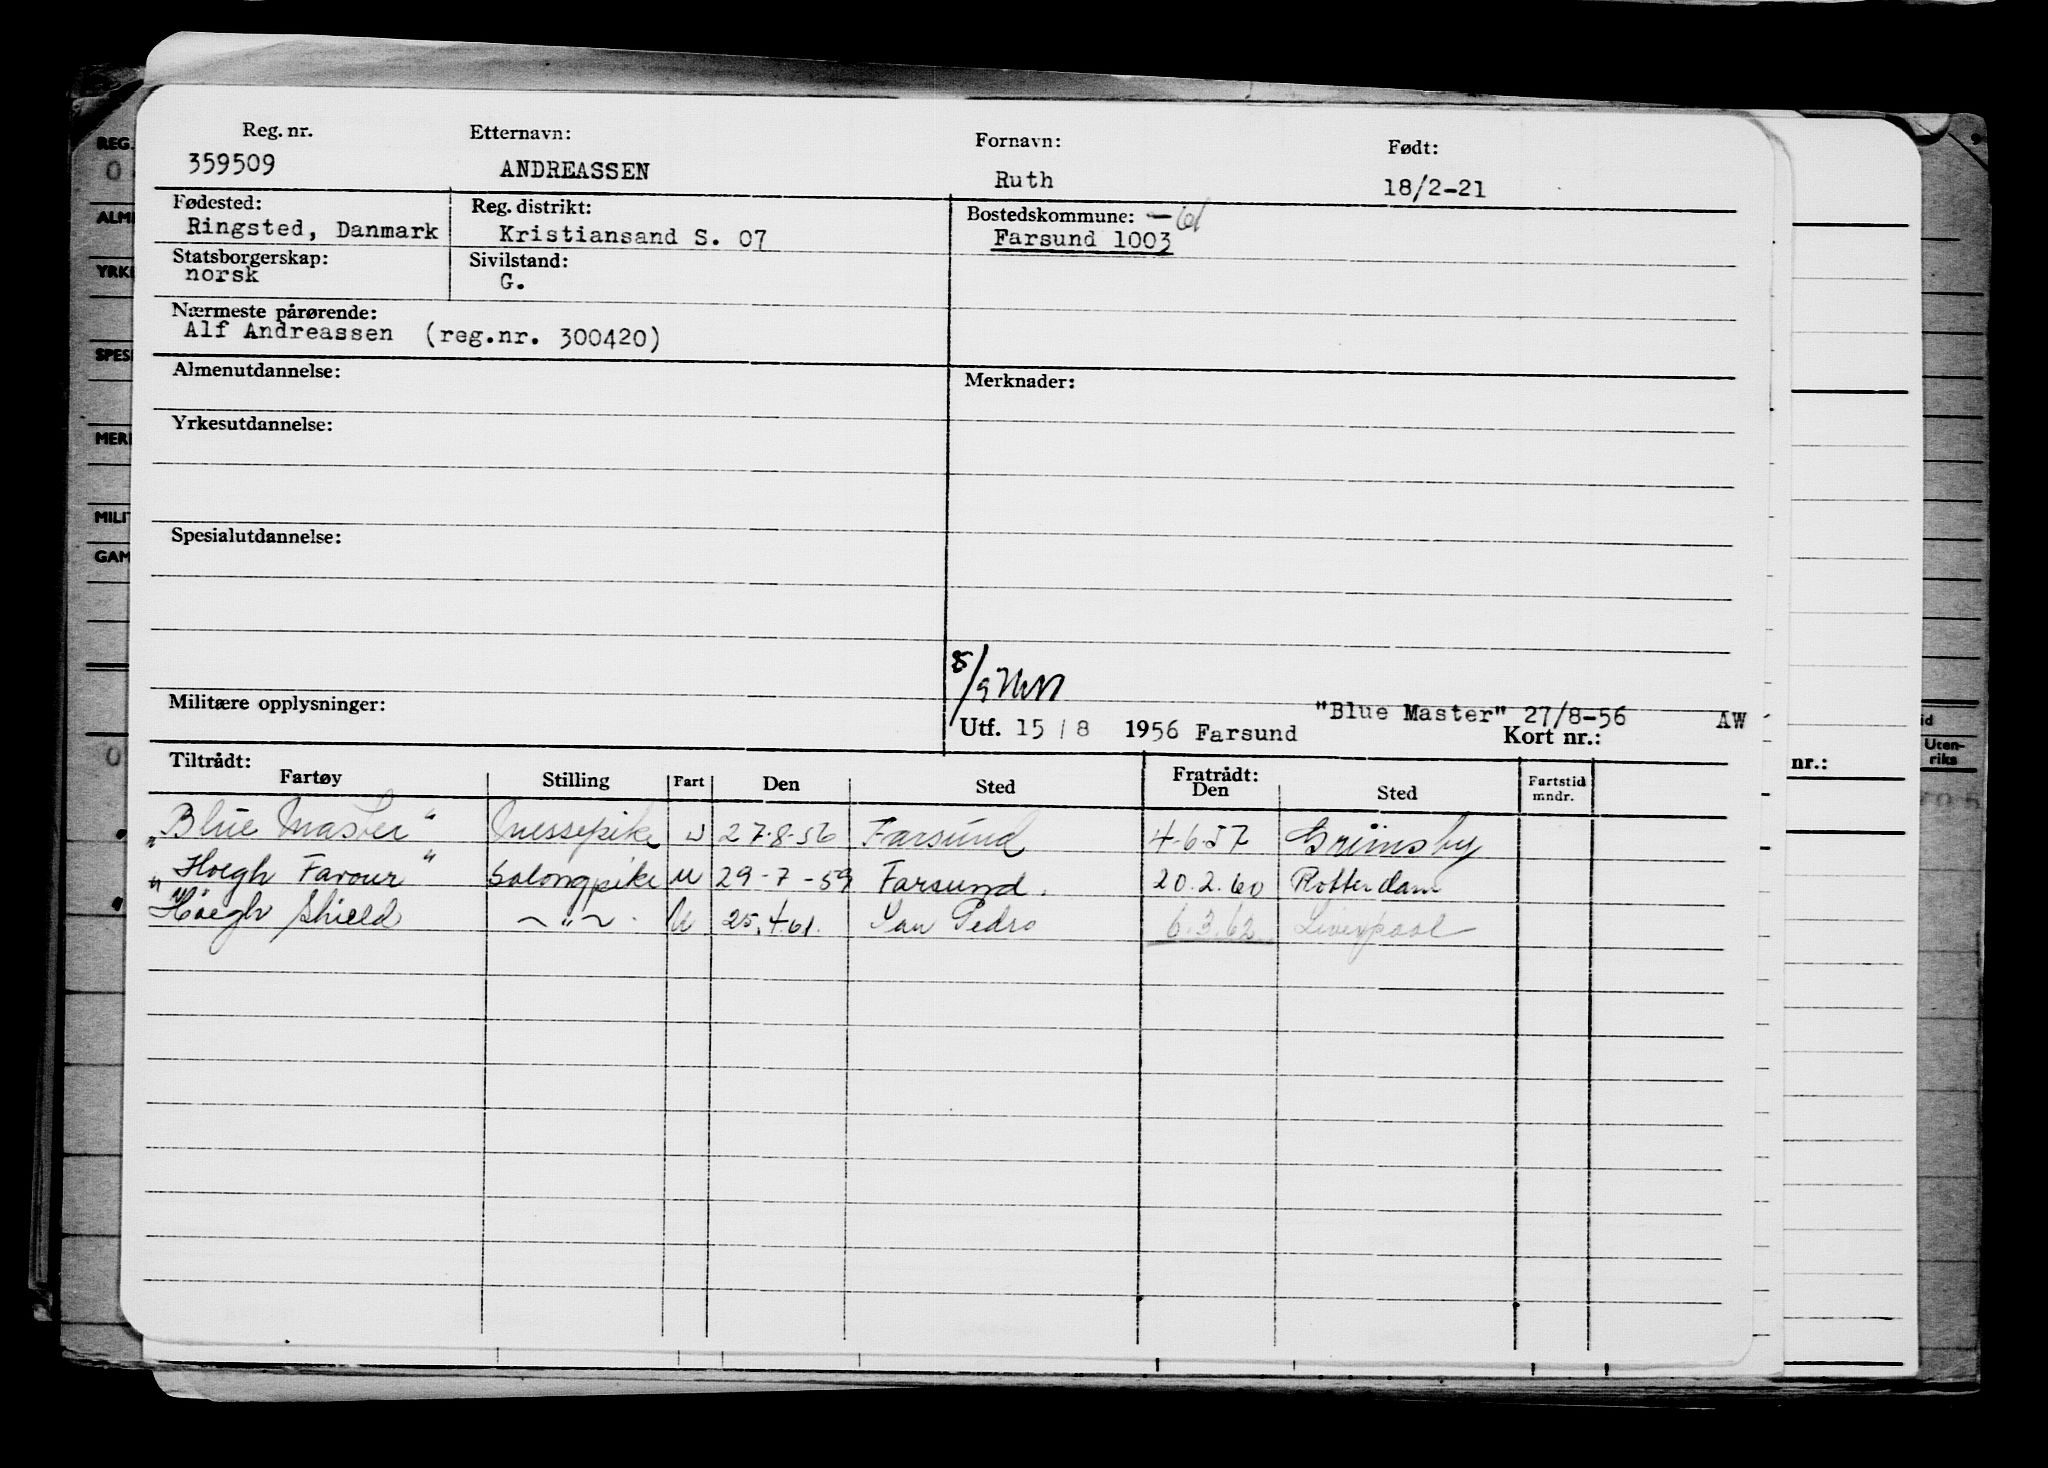 Reg. nr. Etternavn: Fornavn: Født:
359509 ANDREASSEN Ruth 18/2-21
Fødested: Reg. distrikt: Bostedskommune: -61
Ringsted, Danmark Kristiansand S. 07 Farsund 1003
Statsborgerskap: Sivilstand:
norsk G.
Nærmeste pårørende:
Alf Andreassen (reg.nr. 300420)
Almenutdannelse: Merknader:
Yrkesutdannelse:
Spesialutdannelse:
8/9
Militære opplysninger:
"Blue Master" 27/8-56 AW
Utf. 15 / 8 1956 Farsund Kort nr.:
Tiltrådt: Fratrådt:
Fartøy Stilling Fart Den Sted Den Sted Fartstid mndr.
"Blue Master" Messepike U 27-8-56 Farsund 4-6-57 Grimsby
"Hoegh Favour" Salongpike U 29-7-59 Farsund. 20.2.60 Rotterdam
"Høegh Shield — " — U 25.4.61. San Pedro 6.3.62 Liverpool
REG.
0
ALM
YRK
SPES
MER
MILIT
GAM
0
nr.:
id
Uten-
riks